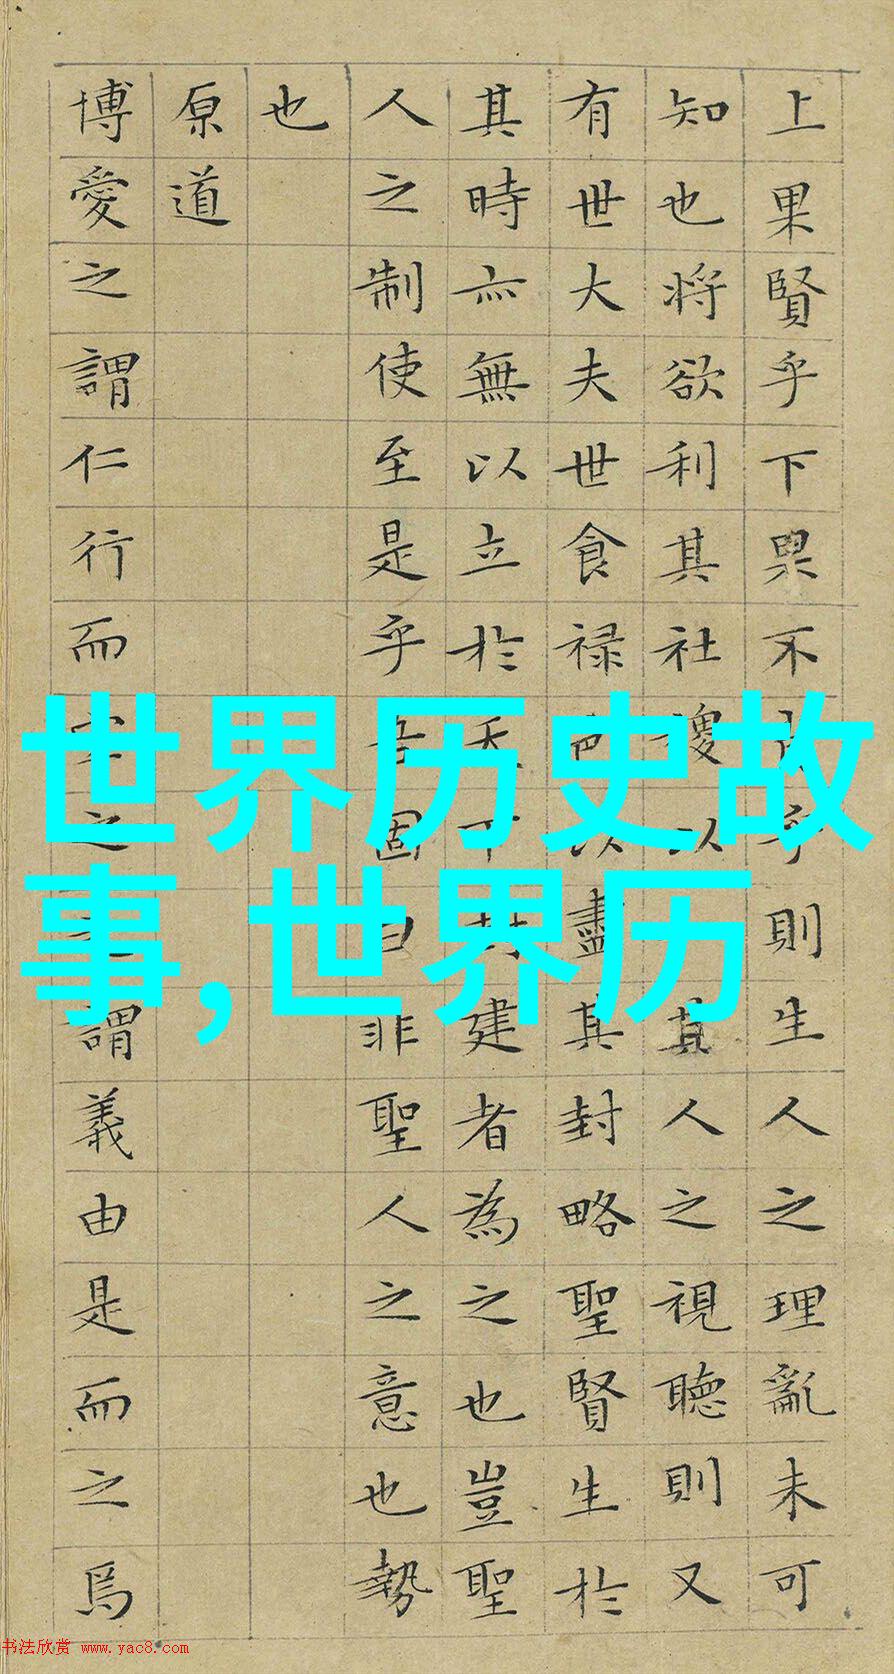 上果賢乎下果不乎則生人之理亂未可
知也将欲利其社稷以其人之視聽則又
有世大夫世食禄邑以盡其封略聖賢生於
其時亦無以立於天下封建者為之也豈聖
人之制使至是乎吾固曰非聖人之意也勢
也
原道
博愛之謂仁行而宜之之謂義由是而之焉
世界历史故
事,世界历
书法欣赏 www.yac8.com